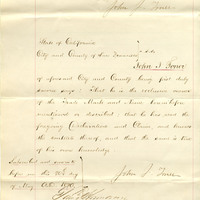 John J. Tower
State of California
City and County of San Francisco } ss
John J. Tower
of aforesaid City and County being first duly
sworn says: That he is the exclusive owner
of the Trade Mark and Name hereinbefore
mentioned or described; that he has read the
foregoing Declaration and Claim and knows
the contents thereof, and that the same is true
of his own knowledge.
Subscribed and sworn to
before me this
day of Oct 1890
John J. Tower